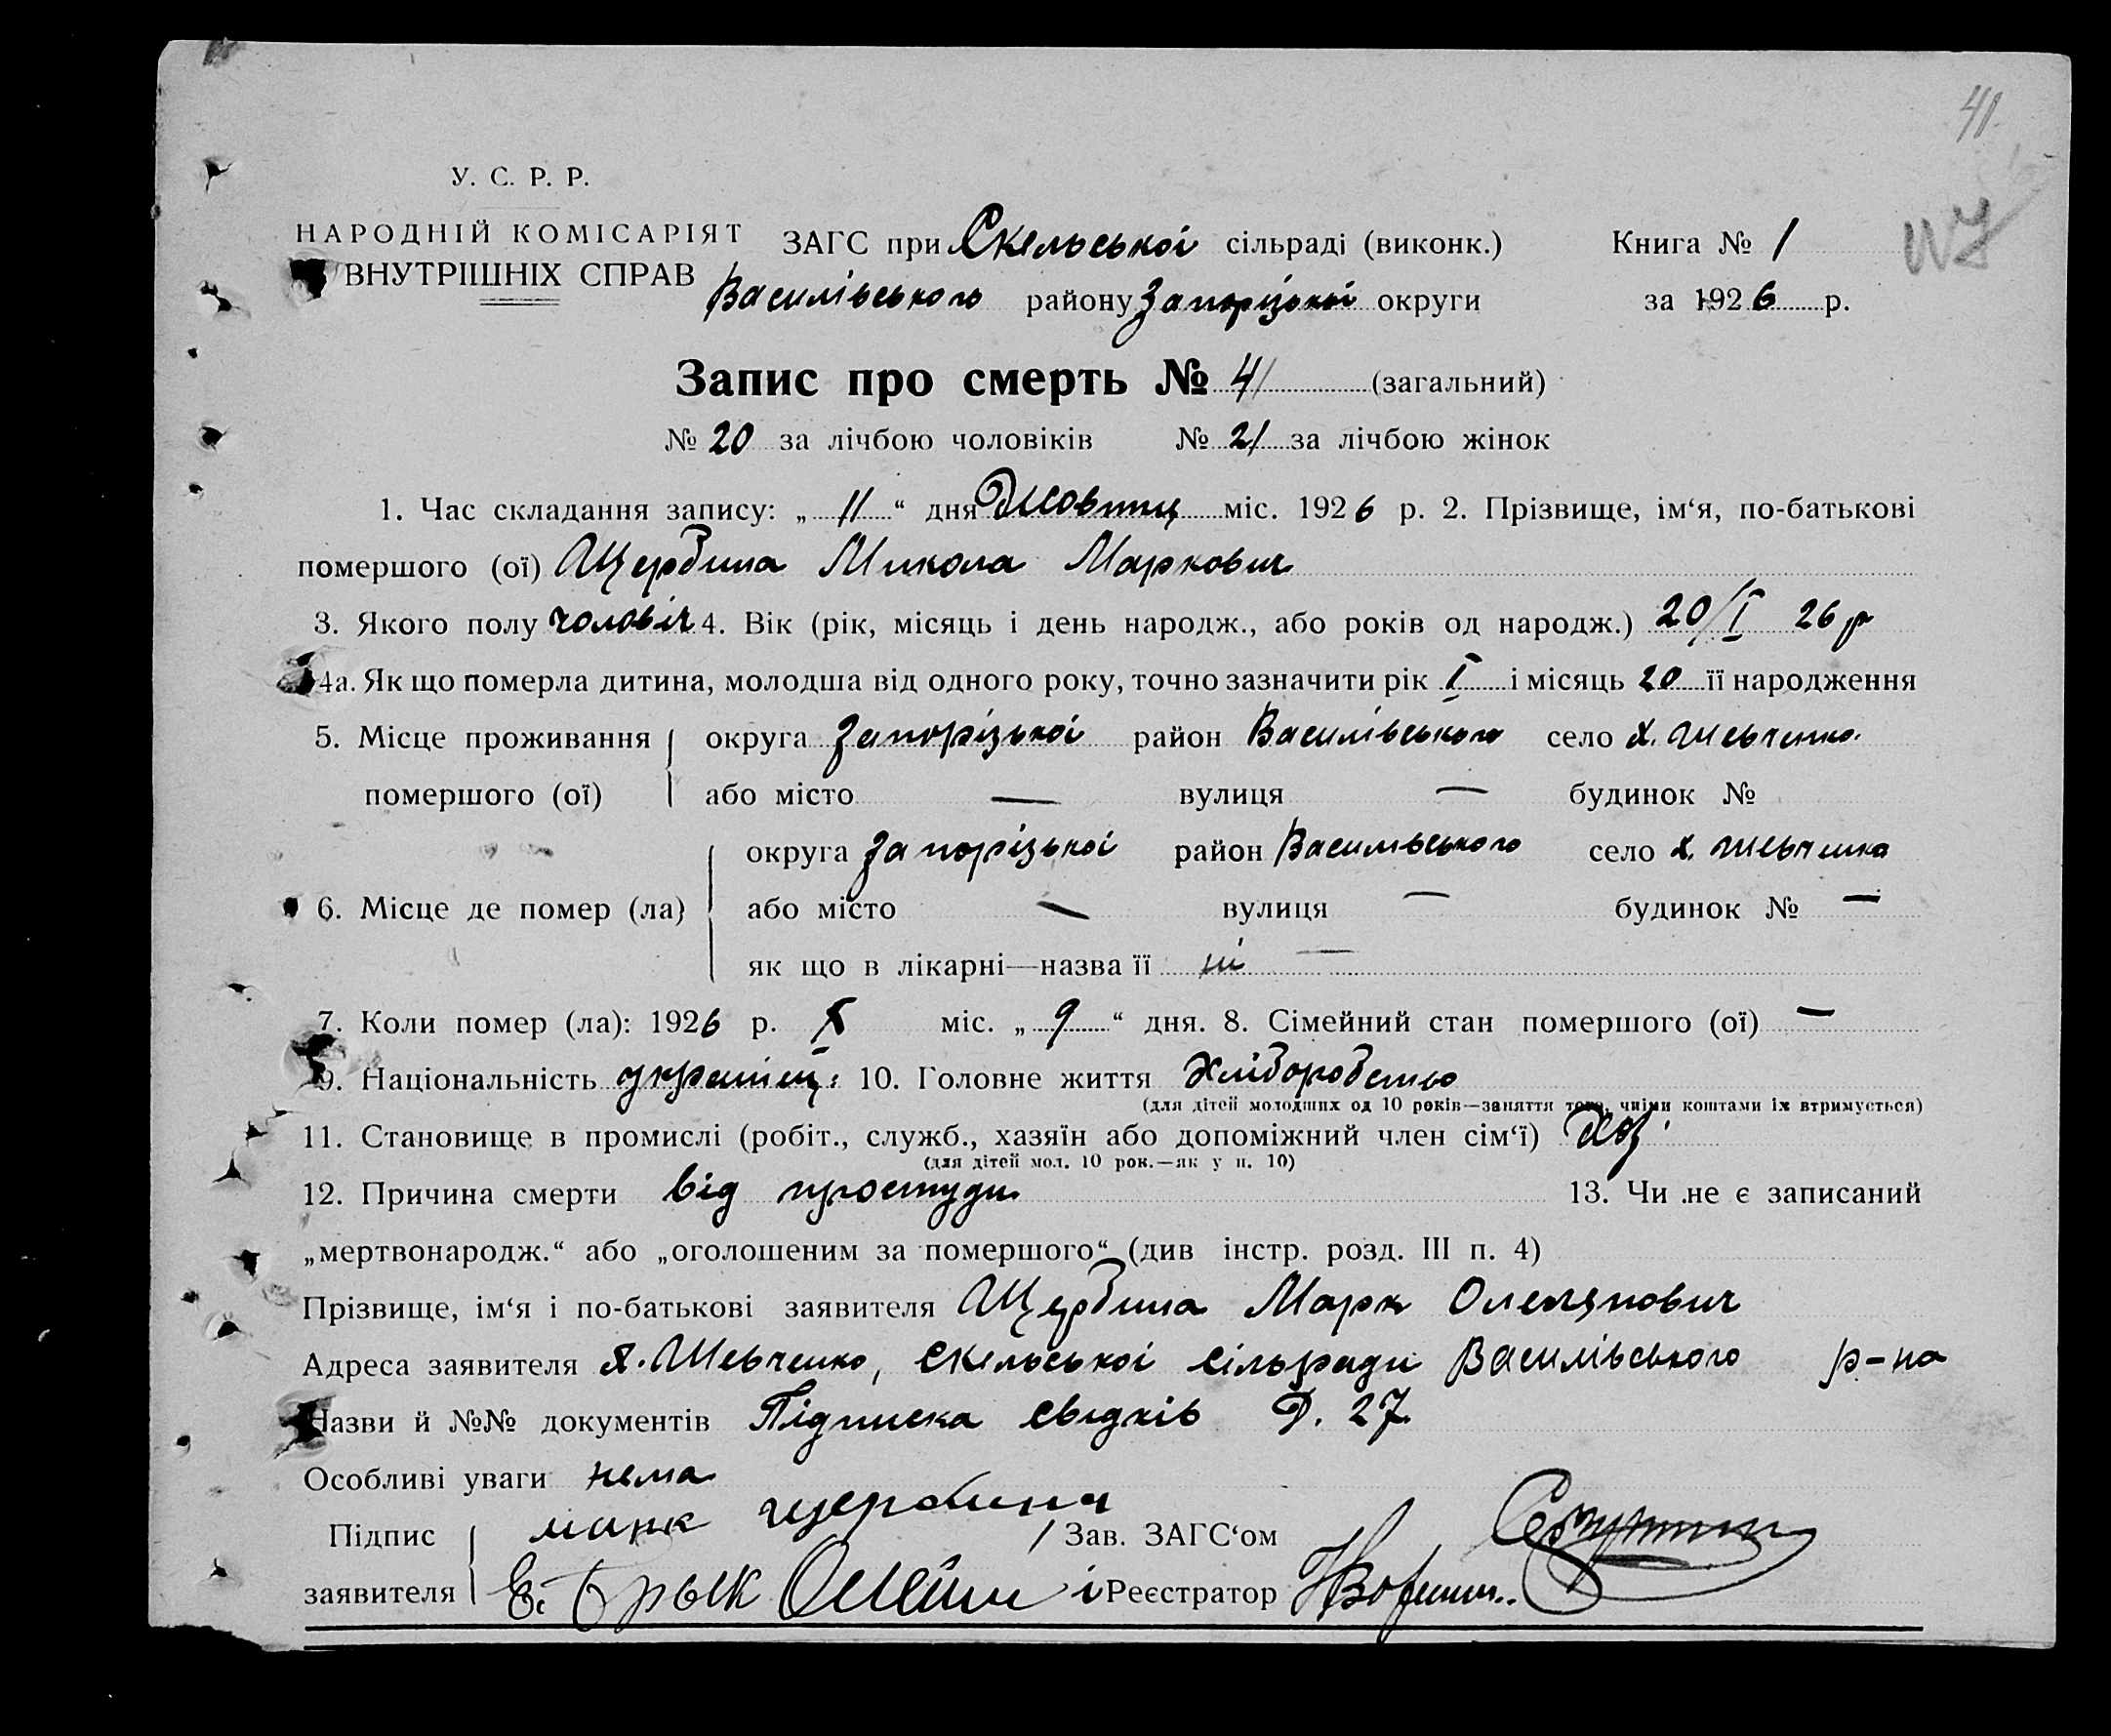 41
У. С. Р. Р.
НАРОДНІЙ КОМІСАРІЯТ
ВНУТРІШНІХ СПРАВ
ЗАГС при Скельської сільраді (виконк.) Книга № 1
Василівського району Запорізької округи за 1926 р.
Запис про смерть № 41 (загальний)
№ 20 за лічбою чоловіків № 21 за лічбою жінок
1. Час складання запису: „ 11 “ дня Жовтня міс. 1926 р. 2. Прізвище, ім‘я, по-батькові
помершого (ої) Щербина Микола Маркович
3. Якого полу чоловіч 4. Вік (рік, місяць і день народж., або років од народж.) 20/I 26 р
4а. Як що померла дитина, молодша від одного року, точно зазначити рік I і місяць 20 її народження
5. Місце проживання округа Запорізької район Василівського село х. Шевченко
помершого (ої) або місто — вулиця — будинок №
округа Запорізької район Василівського село х. Шевченка
6. Місце де помер (ла) або місто — вулиця — будинок № —
як що в лікарні—назва її ні —
7. Коли помер (ла): 1926 р. X міс. „ 9 “ дня. 8. Сімейний стан помершого (ої) —
9. Національність україн. 10. Головне життя Хліборобство
(для дітей молодших од 10 років—заняття того, чиїми коштами їх втримується)
11. Становище в промислі (робіт., служб., хазяїн або допоміжний член сім‘ї) Хаз.
(для дітей мол. 10 рок.—як у п. 10)
12. Причина смерти від простуди 13. Чи не є записаний
„мертвонародж.“ або „оголошеним за помершого“ (див інстр. розд. III п. 4)
Прізвище, ім‘я і по-батькові заявителя Щербина Марк
Адреса заявителя х. Шевченко, Скельської сільради Василівського р-на
Назви й №№ документів Підписка свідків Д. 27
Особливі уваги нема
Підпис марк щербина Зав. ЗАГС‘ом
заявителя і Реєстратор